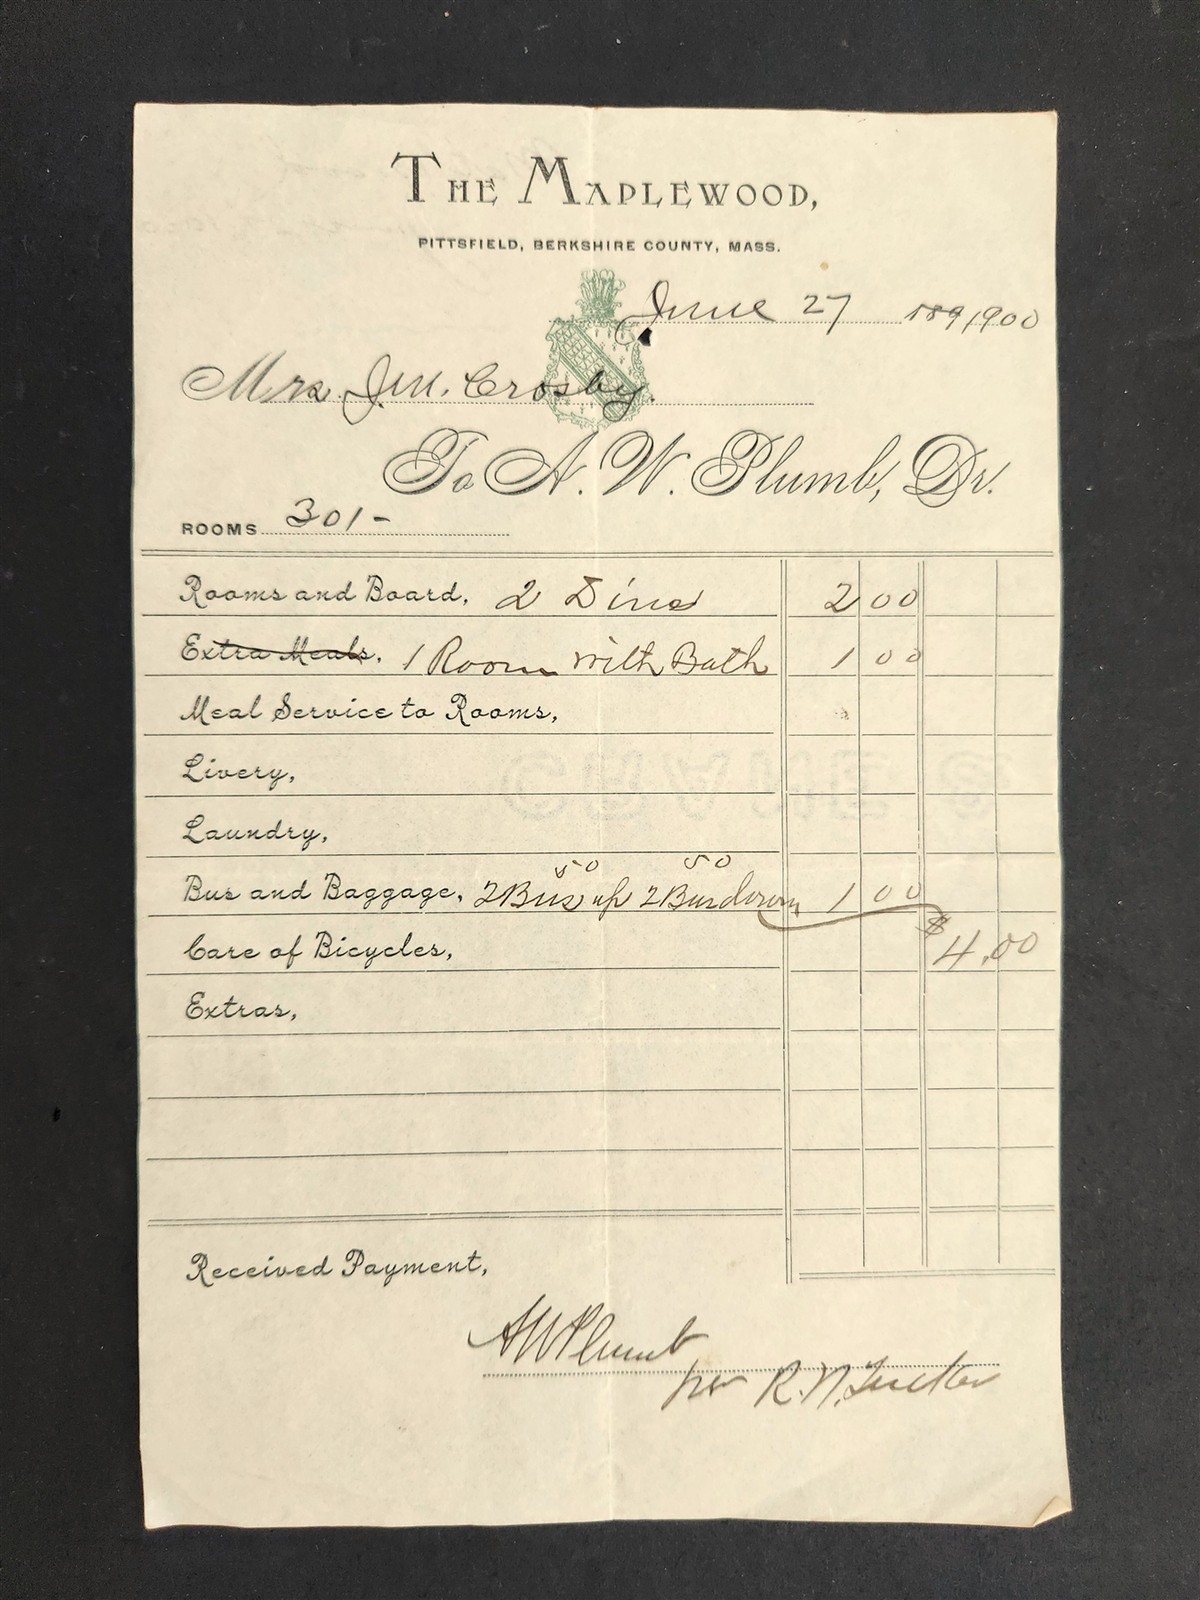 THE MAPLEWOOD,
PITTSFIELD, BERKSHIRE COUNTY, MASS.
June 27 189 1900
Mrs. J.M. Crosby.
To A. W. Plumb, Dr.
ROOMS 301-
Rooms and Board, 2 Dins 2 00
Extra Meals, 1 Room with Bath 1 00
Meal Service to Rooms,
Livery,
Laundry,
50 50
Bus and Baggage, 2 Bus up 2 Bus down 1 00
$4.00
Care of Bicycles,
Extras,
Received Payment,
AW Plumb
per R.N. Tucker